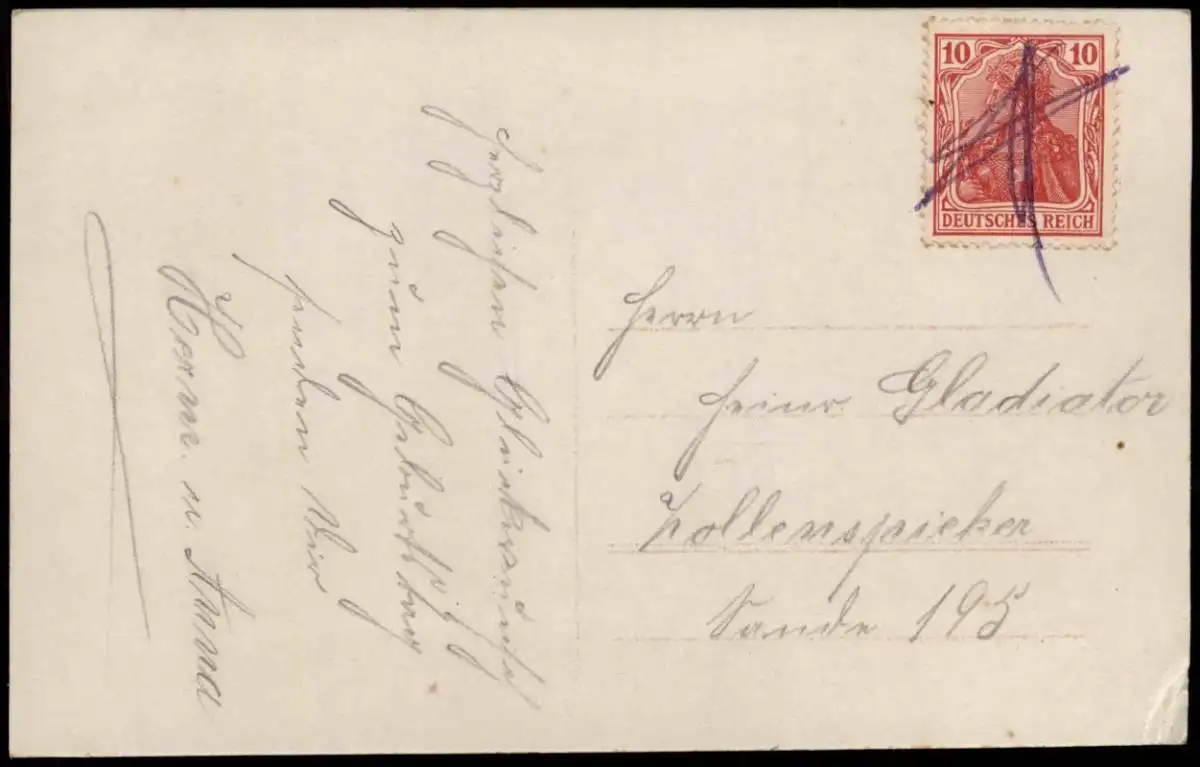 10 10
DEUTSCHES REICH
Herzlichen Glückwunsch
zum Geburtstag
senden Wir
Herm. u. Anna
Herrn
Heinr. Gladiator
Zollenspieker
Sande 195